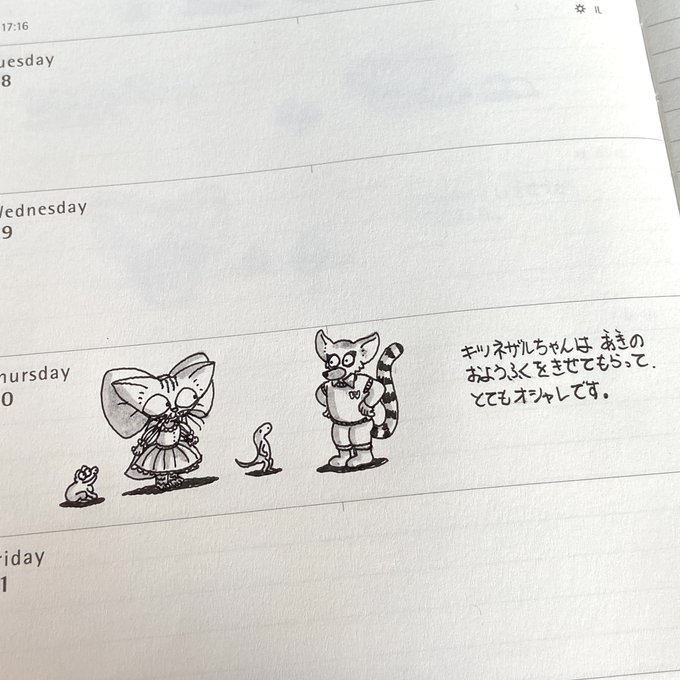 17:16
uesday
8
Wednesday
9
hursday
0
キツネザルちゃんは あきの
おようふくをきせてもらって、
とてもオシャレです。
riday
1